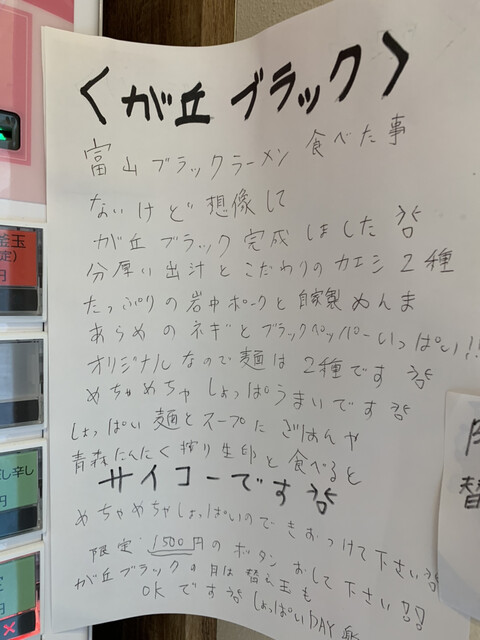 〈が丘ブラック〉
富山ブラックラーメン食べた事
ないけど想像して
が丘ブラック完成しました
分厚い出汁とこだわりのカエシ2種
たっぷりの岩中ポークと自家製めんま
あらめのネギとブラックペッパーいっぱい!!
オリジナルなので麺は2種です
めちゃめちゃしょっぱうまいです
しょっぱい麺とスープにごはんや
青森にんにく搾り生卵と食べると
サイコーです
めちゃめちゃしょっぱいのできおつけて下さい
限定1500円のボタンおして下さい!!
が丘ブラックの月は替え玉も
OKです しょっぱいDAY
釜玉
定)
円
辛し
円
円
替